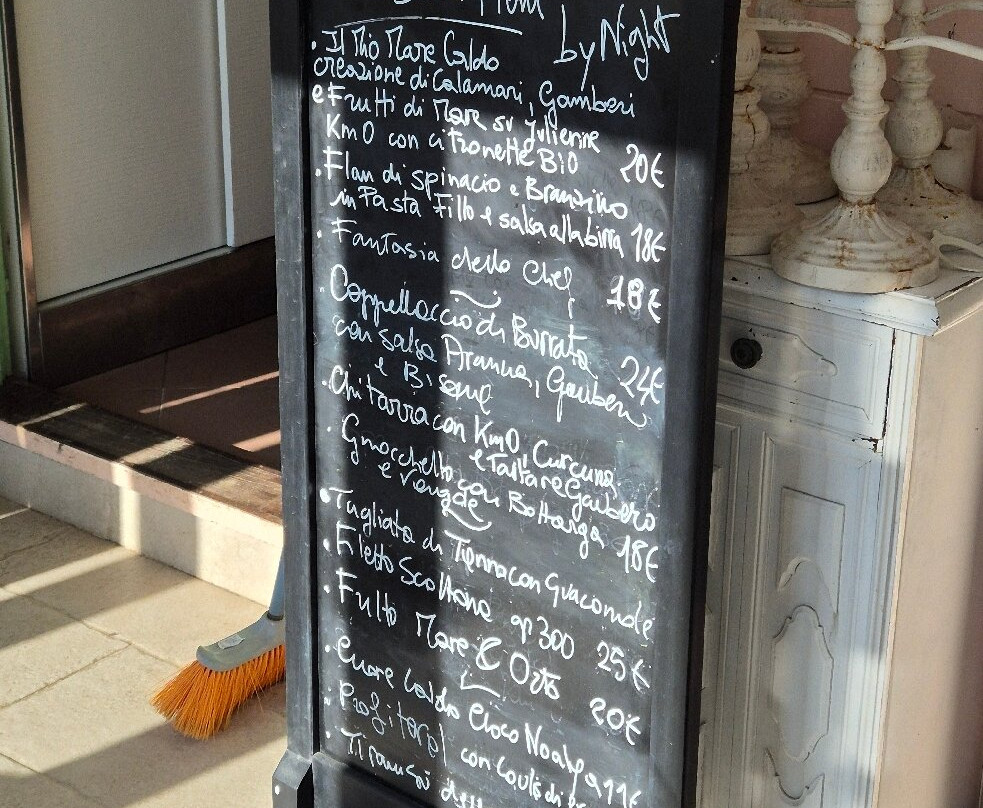 by Night
• Il Mio Mare Caldo
creazione di Calamari, Gamberi
e Frutti di Mare su Julienne
Km0 con citronette Bio 20€
• Flan di spinacio e Branzino
in Pasta Fillo e salsa alla birra 18€
• Fantasia dello Chef 18€
• Cappellaccio di Burrata
con salsa Arancia, Gamberi 24€
e Bisque
• Chitarra con Km0, Curcuma
e Tartare Gambero
• Gnocchetto con Bottarga
e vongole 18€
• Tagliata di Tonno con Guacamole
• Filetto Scottona gr 300 25€
• Fritto Mare & Orto 20€
• Cuore Caldo Cioco 11€
• Profiterol con Coulis di
• Tiramisù